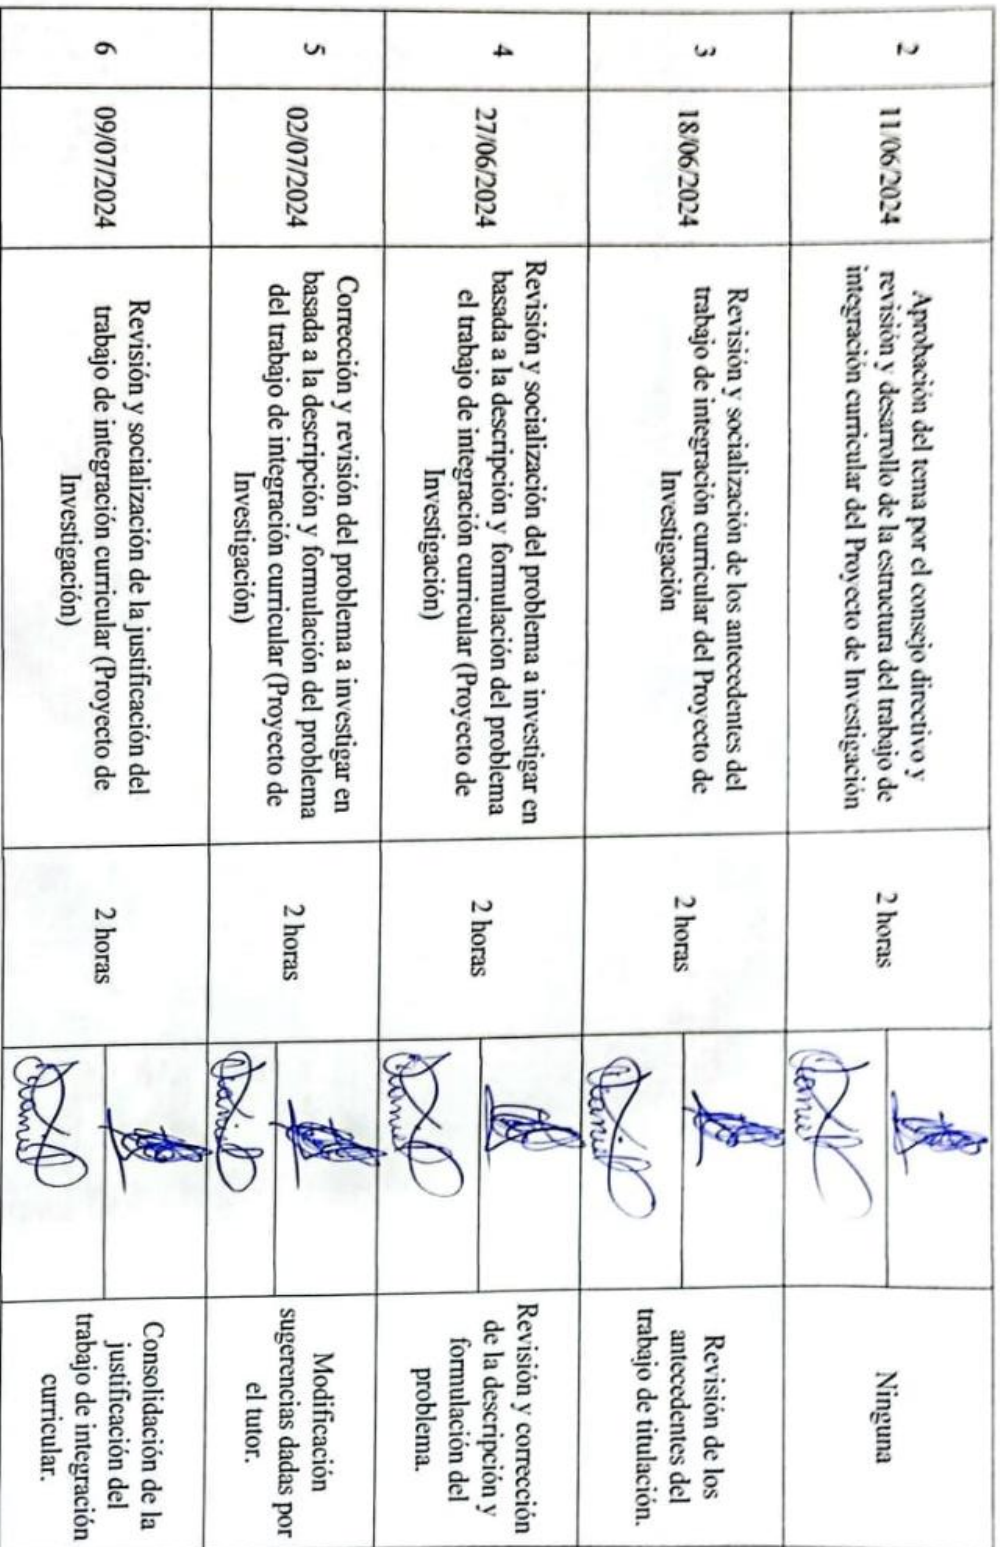 2
11/06/2024
Aprobación del tema por el consejo directivo y
revisión y desarrollo de la estructura del trabajo de
integración curricular del Proyecto de Investigación
2 horas
Ninguna
3
18/06/2024
Revisión y socialización de los antecedentes del
trabajo de integración curricular del Proyecto de
Investigación
2 horas
Revisión de los
antecedentes del
trabajo de titulación.
4
27/06/2024
Revisión y socialización del problema a investigar en
basada a la descripción y formulación del problema
el trabajo de integración curricular (Proyecto de
Investigación)
2 horas
Revisión y corrección
de la descripción y
formulación del
problema.
5
02/07/2024
Corrección y revisión del problema a investigar en
basada a la descripción y formulación del problema
del trabajo de integración curricular (Proyecto de
Investigación)
2 horas
Modificación
sugerencias dadas por
el tutor.
6
09/07/2024
Revisión y socialización de la justificación del
trabajo de integración curricular (Proyecto de
Investigación)
2 horas
Consolidación de la
justificación del
trabajo de integración
curricular.